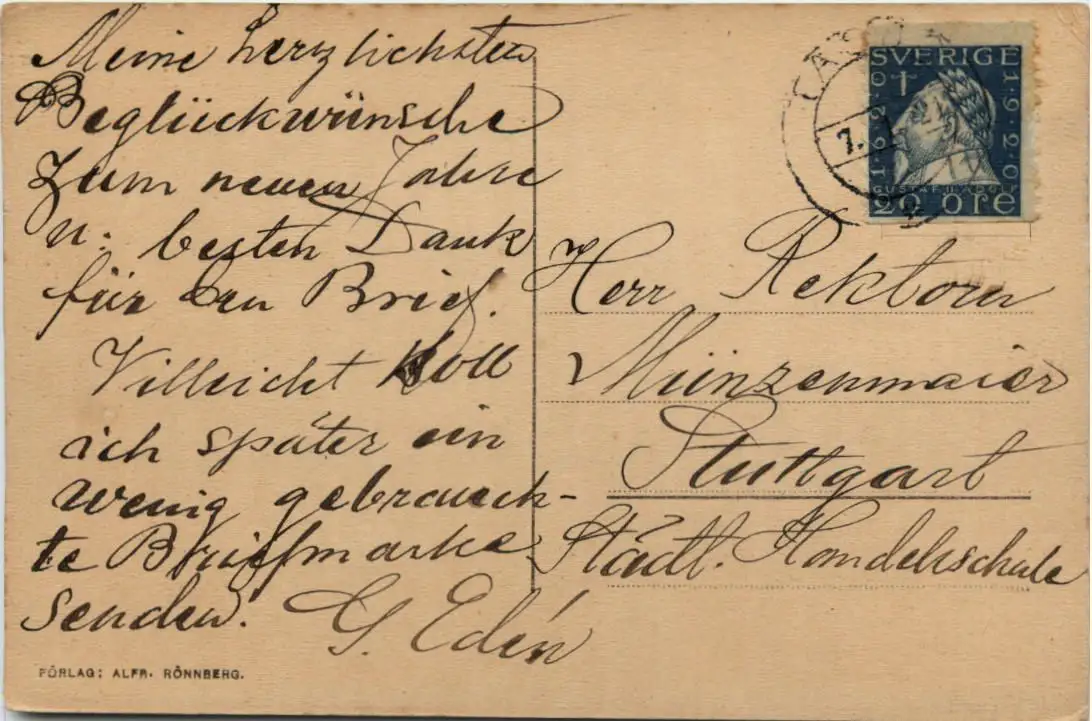 Meine herzlichsten
Beglückwünsche
zum neuen Jahre
u. besten Dank
für den Brief.
Villeicht soll
ich später ein
wenig gebrauck-
te Briefmarke
senden.
G. Edén
FÖRLAG: ALFR. RÖNNBERG.
SVERIGE
1620
1920
GUSTAF II ADOLF
20 ÖRE
7.
Herr Rektorn
Münzenmaier
Stuttgart
Städt. Handelsschule